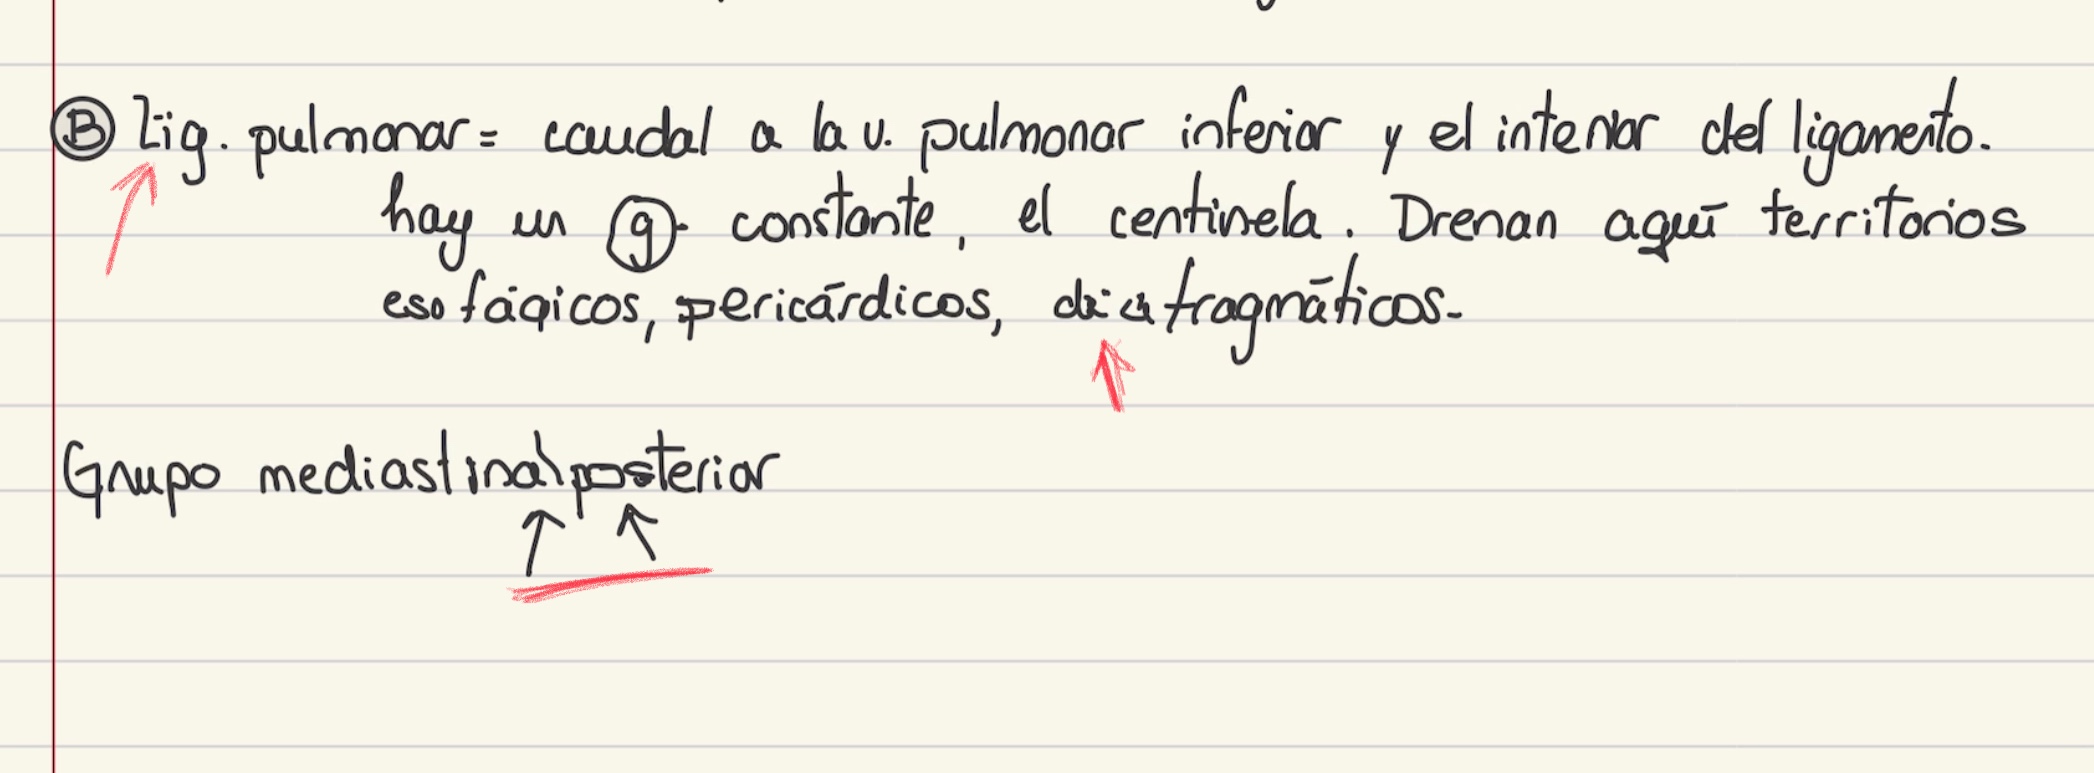 Ⓑ Lig. pulmonar = caudal a la v. pulmonar inferior y el interior del ligamento.
hay un ⓖ constante, el centinela. Drenan aquí territorios
esofágicos, pericárdicos, diafragmáticos.
Grupo mediastinal posterior